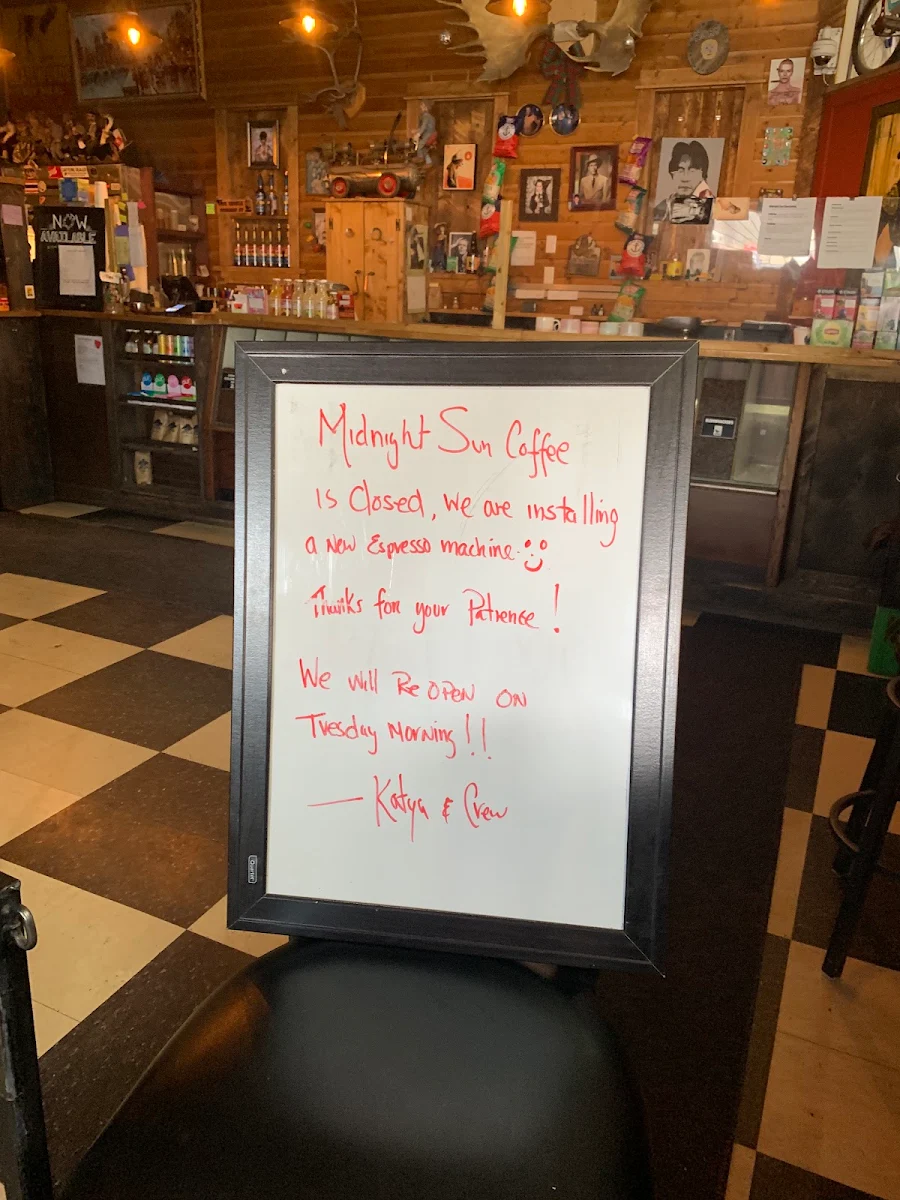 NOW
AVAILABLE
Midnight Sun Coffee
is Closed, we are installing
a New Espresso machine
Thanks for your Patience!
We will Re OPEN ON
Tuesday Morning!!
— Katya & Crew
Quartet